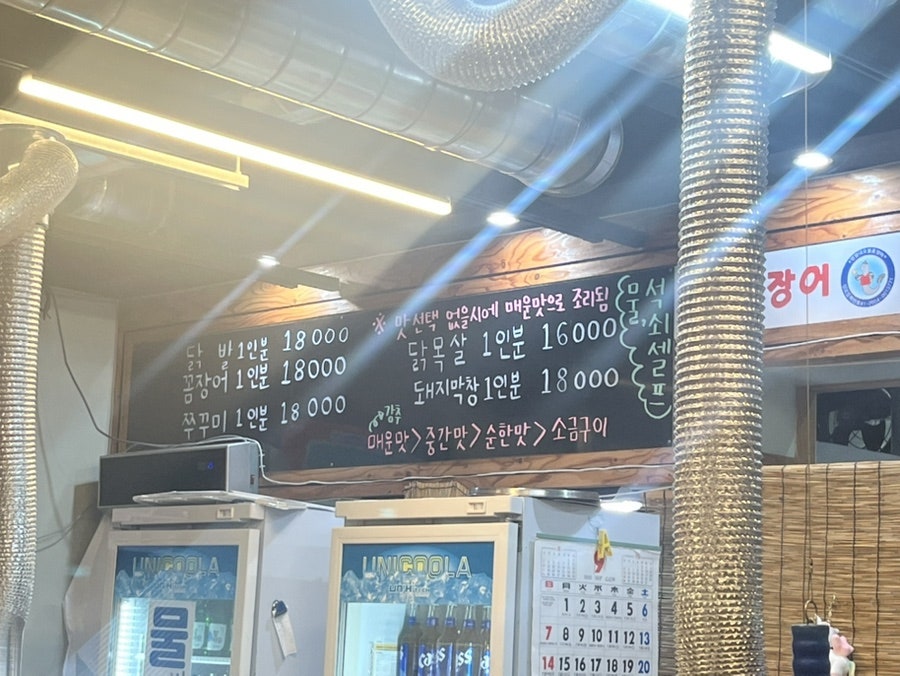 ※ 맛선택 없을시에 매운맛으로 조리됨
닭 발 1인분 18000
꼼장어 1인분 18000
쭈꾸미 1인분 18000
닭목살 1인분 16000
돼지막창 1인분 18000
강추
매운맛>중간맛>순한맛>소금구이
물, 석쇠 셀프
장어
UNICOOLA
UNICOOLA
Cass
9
日 月 火 水 木 金 土
1 2 3 4 5 6
7 8 9 10 11 12 13
14 15 16 17 18 19 20